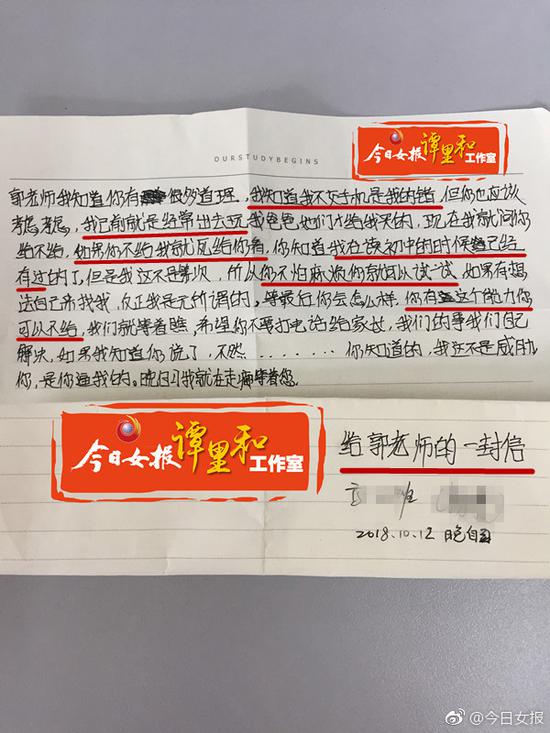 OURSTUDYBEGINS
今日女报 谭里和 工作室
郭老师我知道你有很多道理，我知道我不交手机是我的错但你也应该
考虑考虑，我已前就是经常出去玩我爸爸她们才给我买的，现在我就问你
给不给，如果你不给我就给你看，你知道我在读初中的时候已经
有过的了，但是我这不是第次，所以你不怕麻烦你就可以试一试，如果有想
法自己来找我，反正我是无所谓的，等最后你会怎么样，你有这个能力你
可以不给，我们就等着瞧，希望你不要打电话给家长，我们的事我们自己
解决，如果我知道你说了，不然........你知道的，我这不是威胁
你，是你逼我的。晚自习我就在走廊等着您。
今日女报 谭里和 工作室
给郭老师的一封信
班
2018.10.12 晚自习
@今日女报